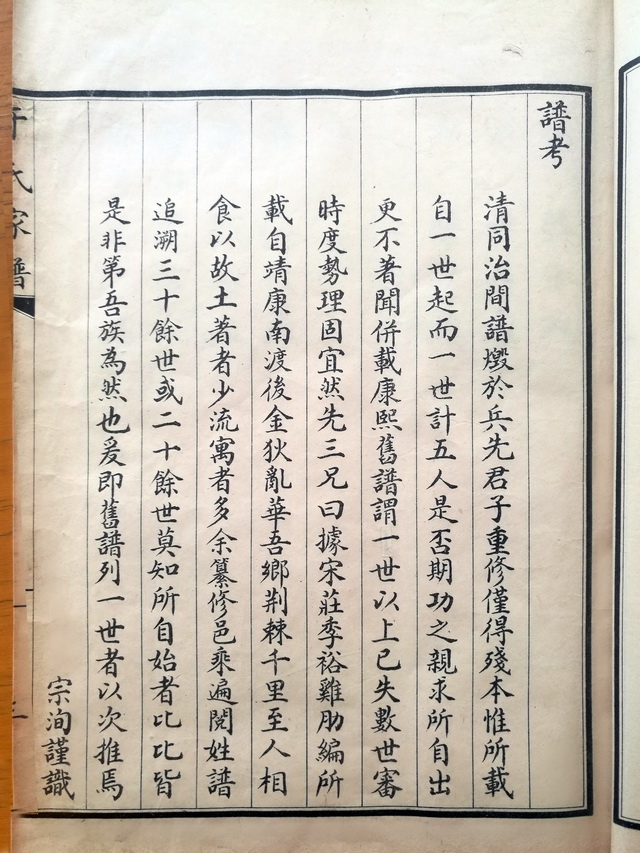 譜考
清同治間譜燬於兵先君子重修僅得殘本惟所載
自一世起而一世計五人是否期功之親求所自出
更不著聞併載康熙舊譜謂一世以上已失數世審
時度勢理固宜然先三兄曰據宋莊季裕雞肋編所
載自靖康南渡後金狄亂華吾鄉荆棘千里至人相
食以故土著者少流寓者多余纂修邑乘遍閱姓譜
追溯三十餘世或二十餘世莫知所自始者比比皆
是非第吾族為然也爰即舊譜列一世者以次推焉
宗洵謹識
氏家譜